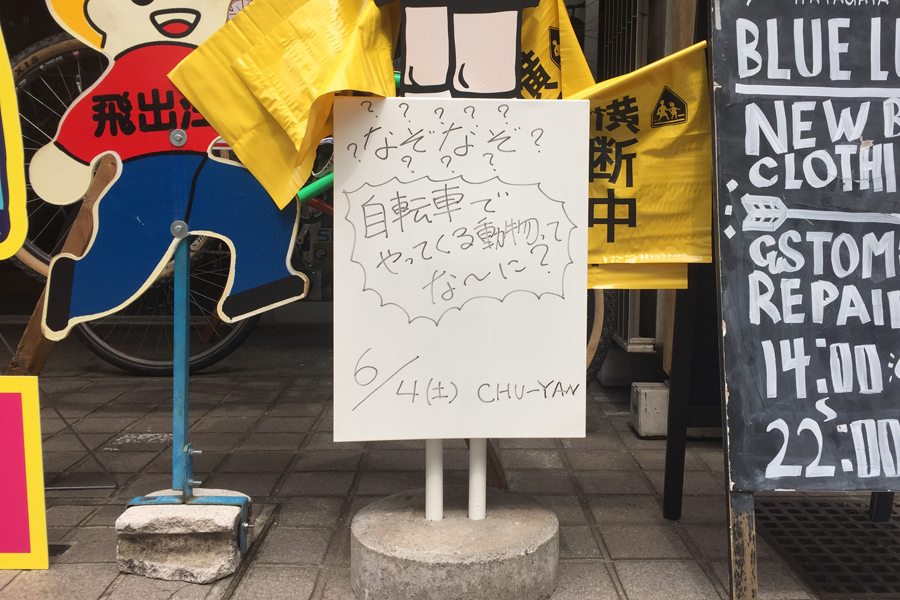 飛出
横断中
? ? ? ? ?
? なぞなぞ ?
? ? ?
自転車で
やってくる動物って
な〜に?
6/4(土) CHU-YAN
BLUE
NEW
CLOTHI
CUSTOM
REPAIR
14:00
S
22:00